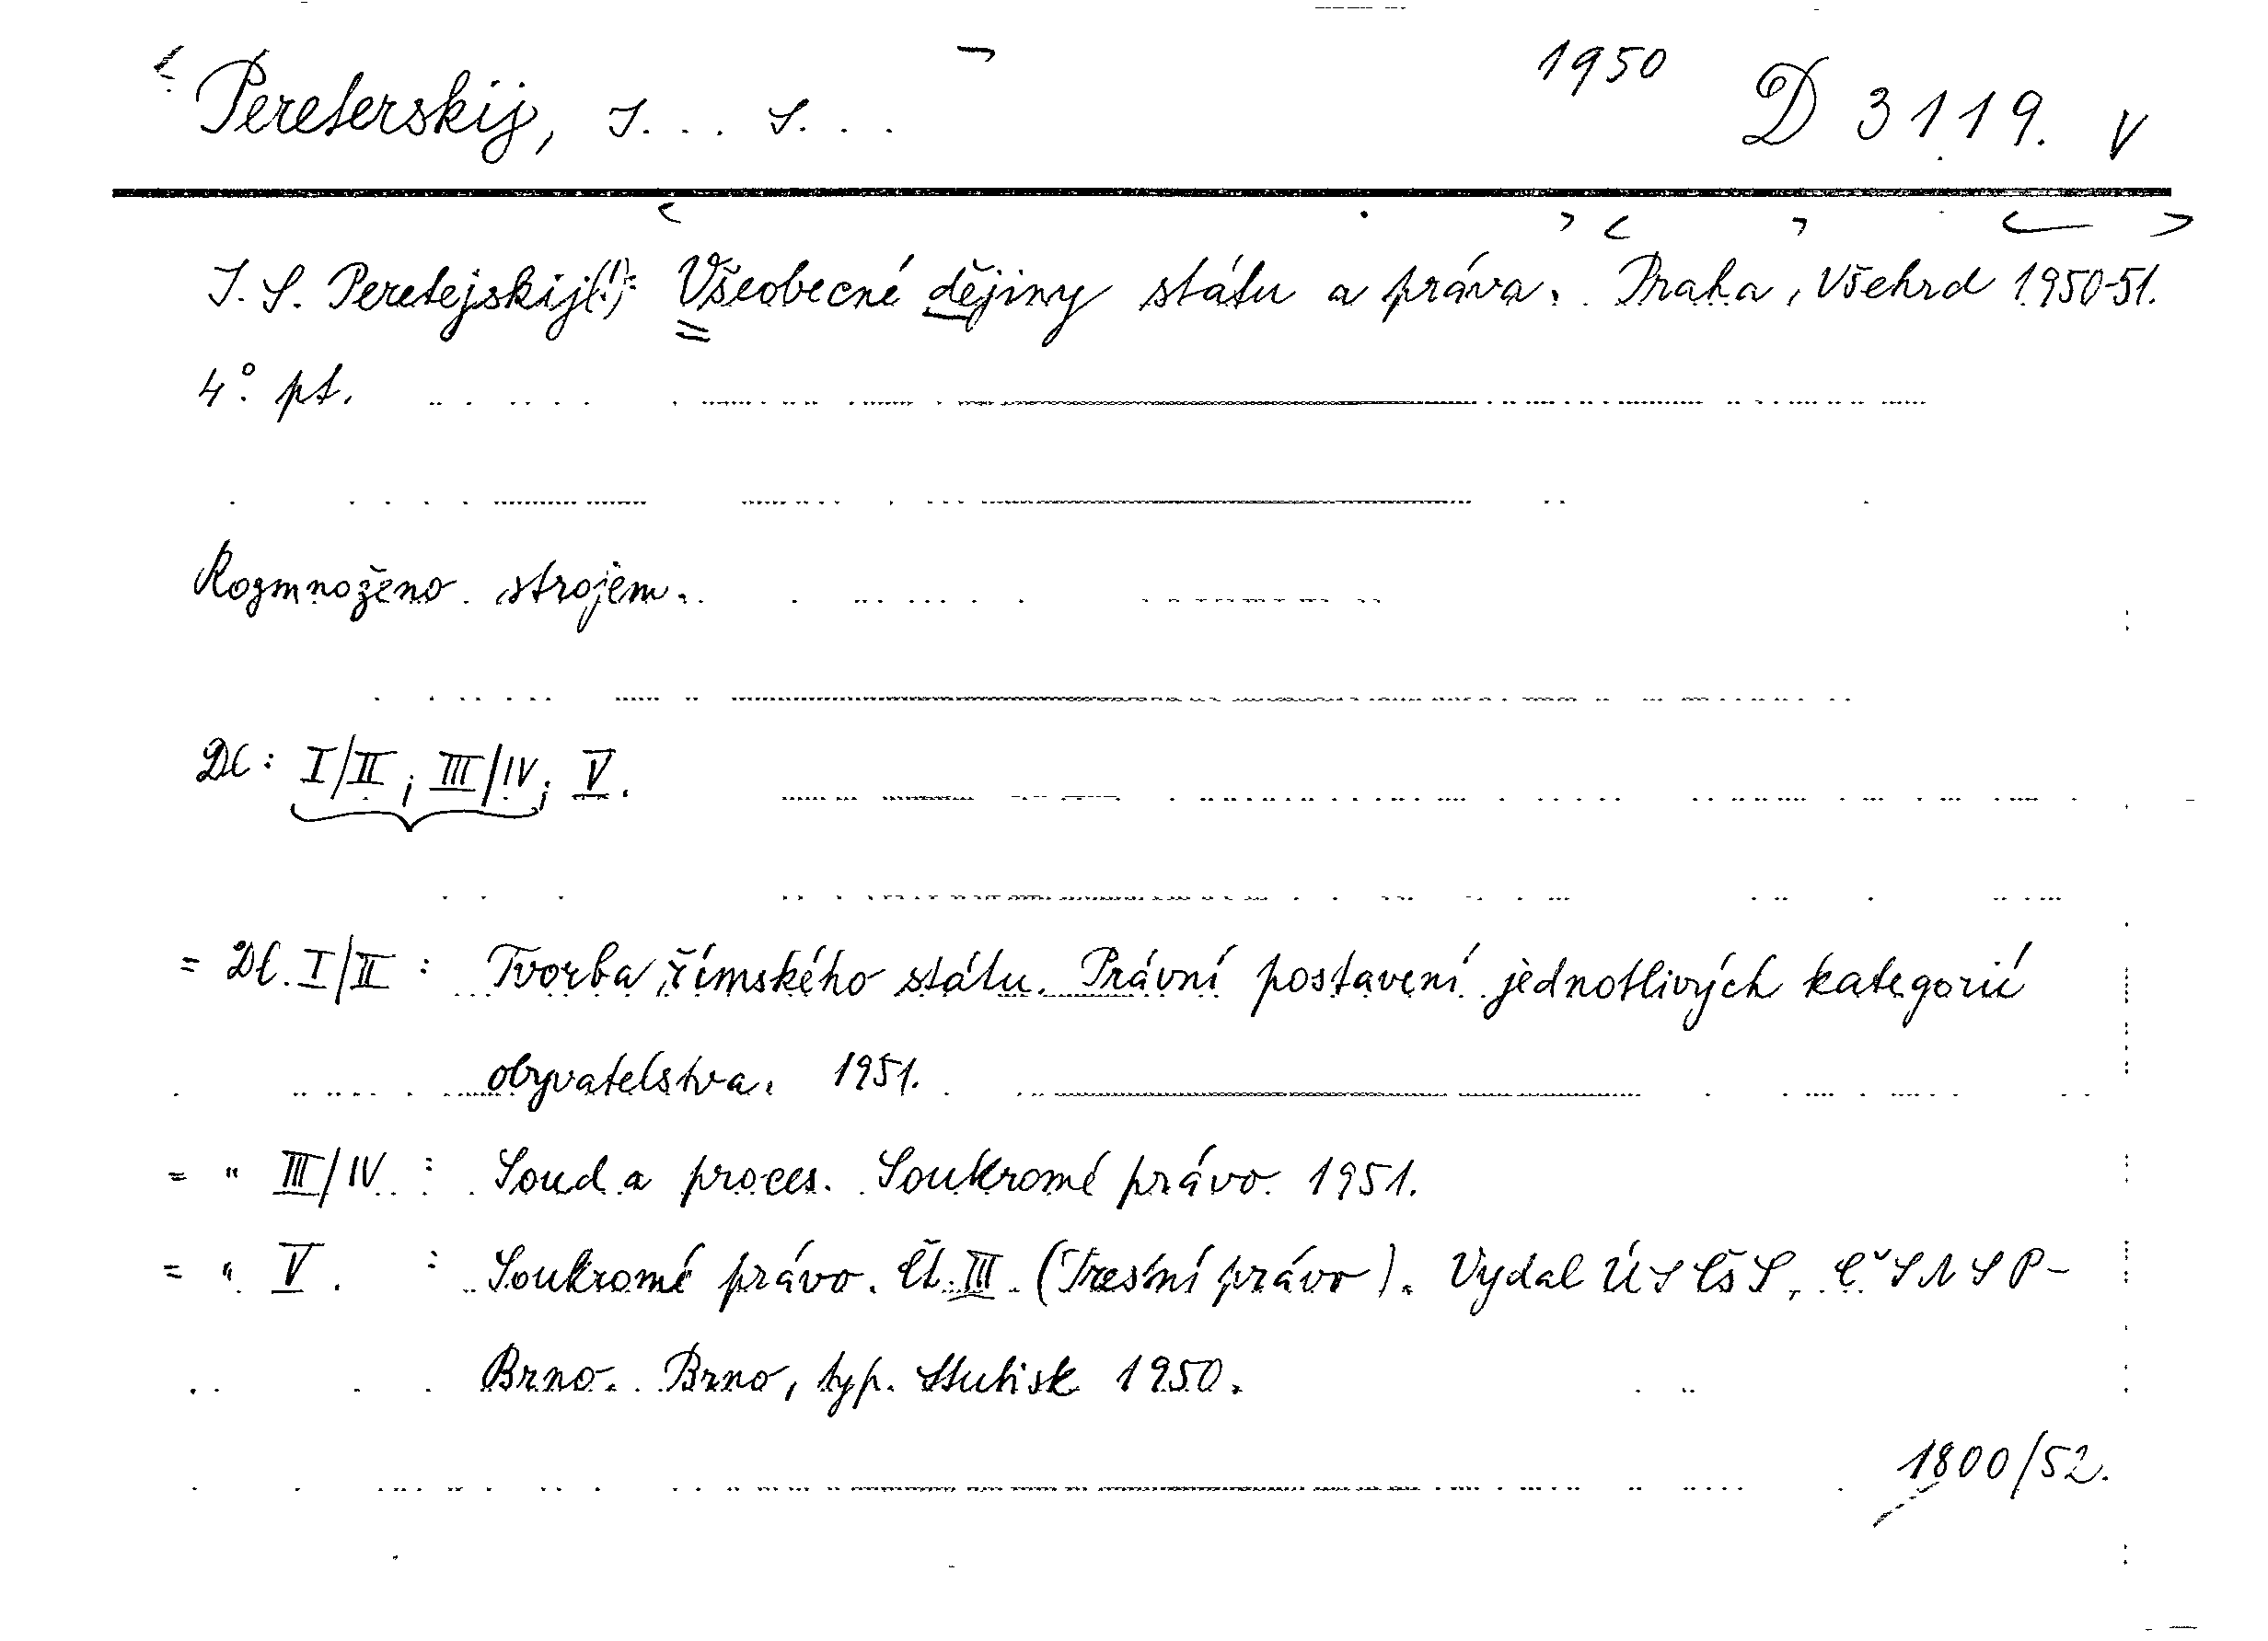 Pereterskij, I... S...
1950 D 3119. V
I. S. Peretejskij(!): Všeobecné dějiny státu a práva. Praha, Všehrd 1950-51.
4° pt.
Rozmnoženo strojem.
Dl: I/II; III/IV; V.
= Dl. I/II: Tvorba římského státu. Právní postavení jednotlivých kategorií
obyvatelstva. 1951.
= " III/IV: Soud a proces. Soukromé právo. 1951.
= " V. : Soukromé právo. Čl. III. (Trestní právo). Vydal ÚSČsS, ČSNSP-
Brno. Brno, typ. Stutisk 1950.
1800/52.